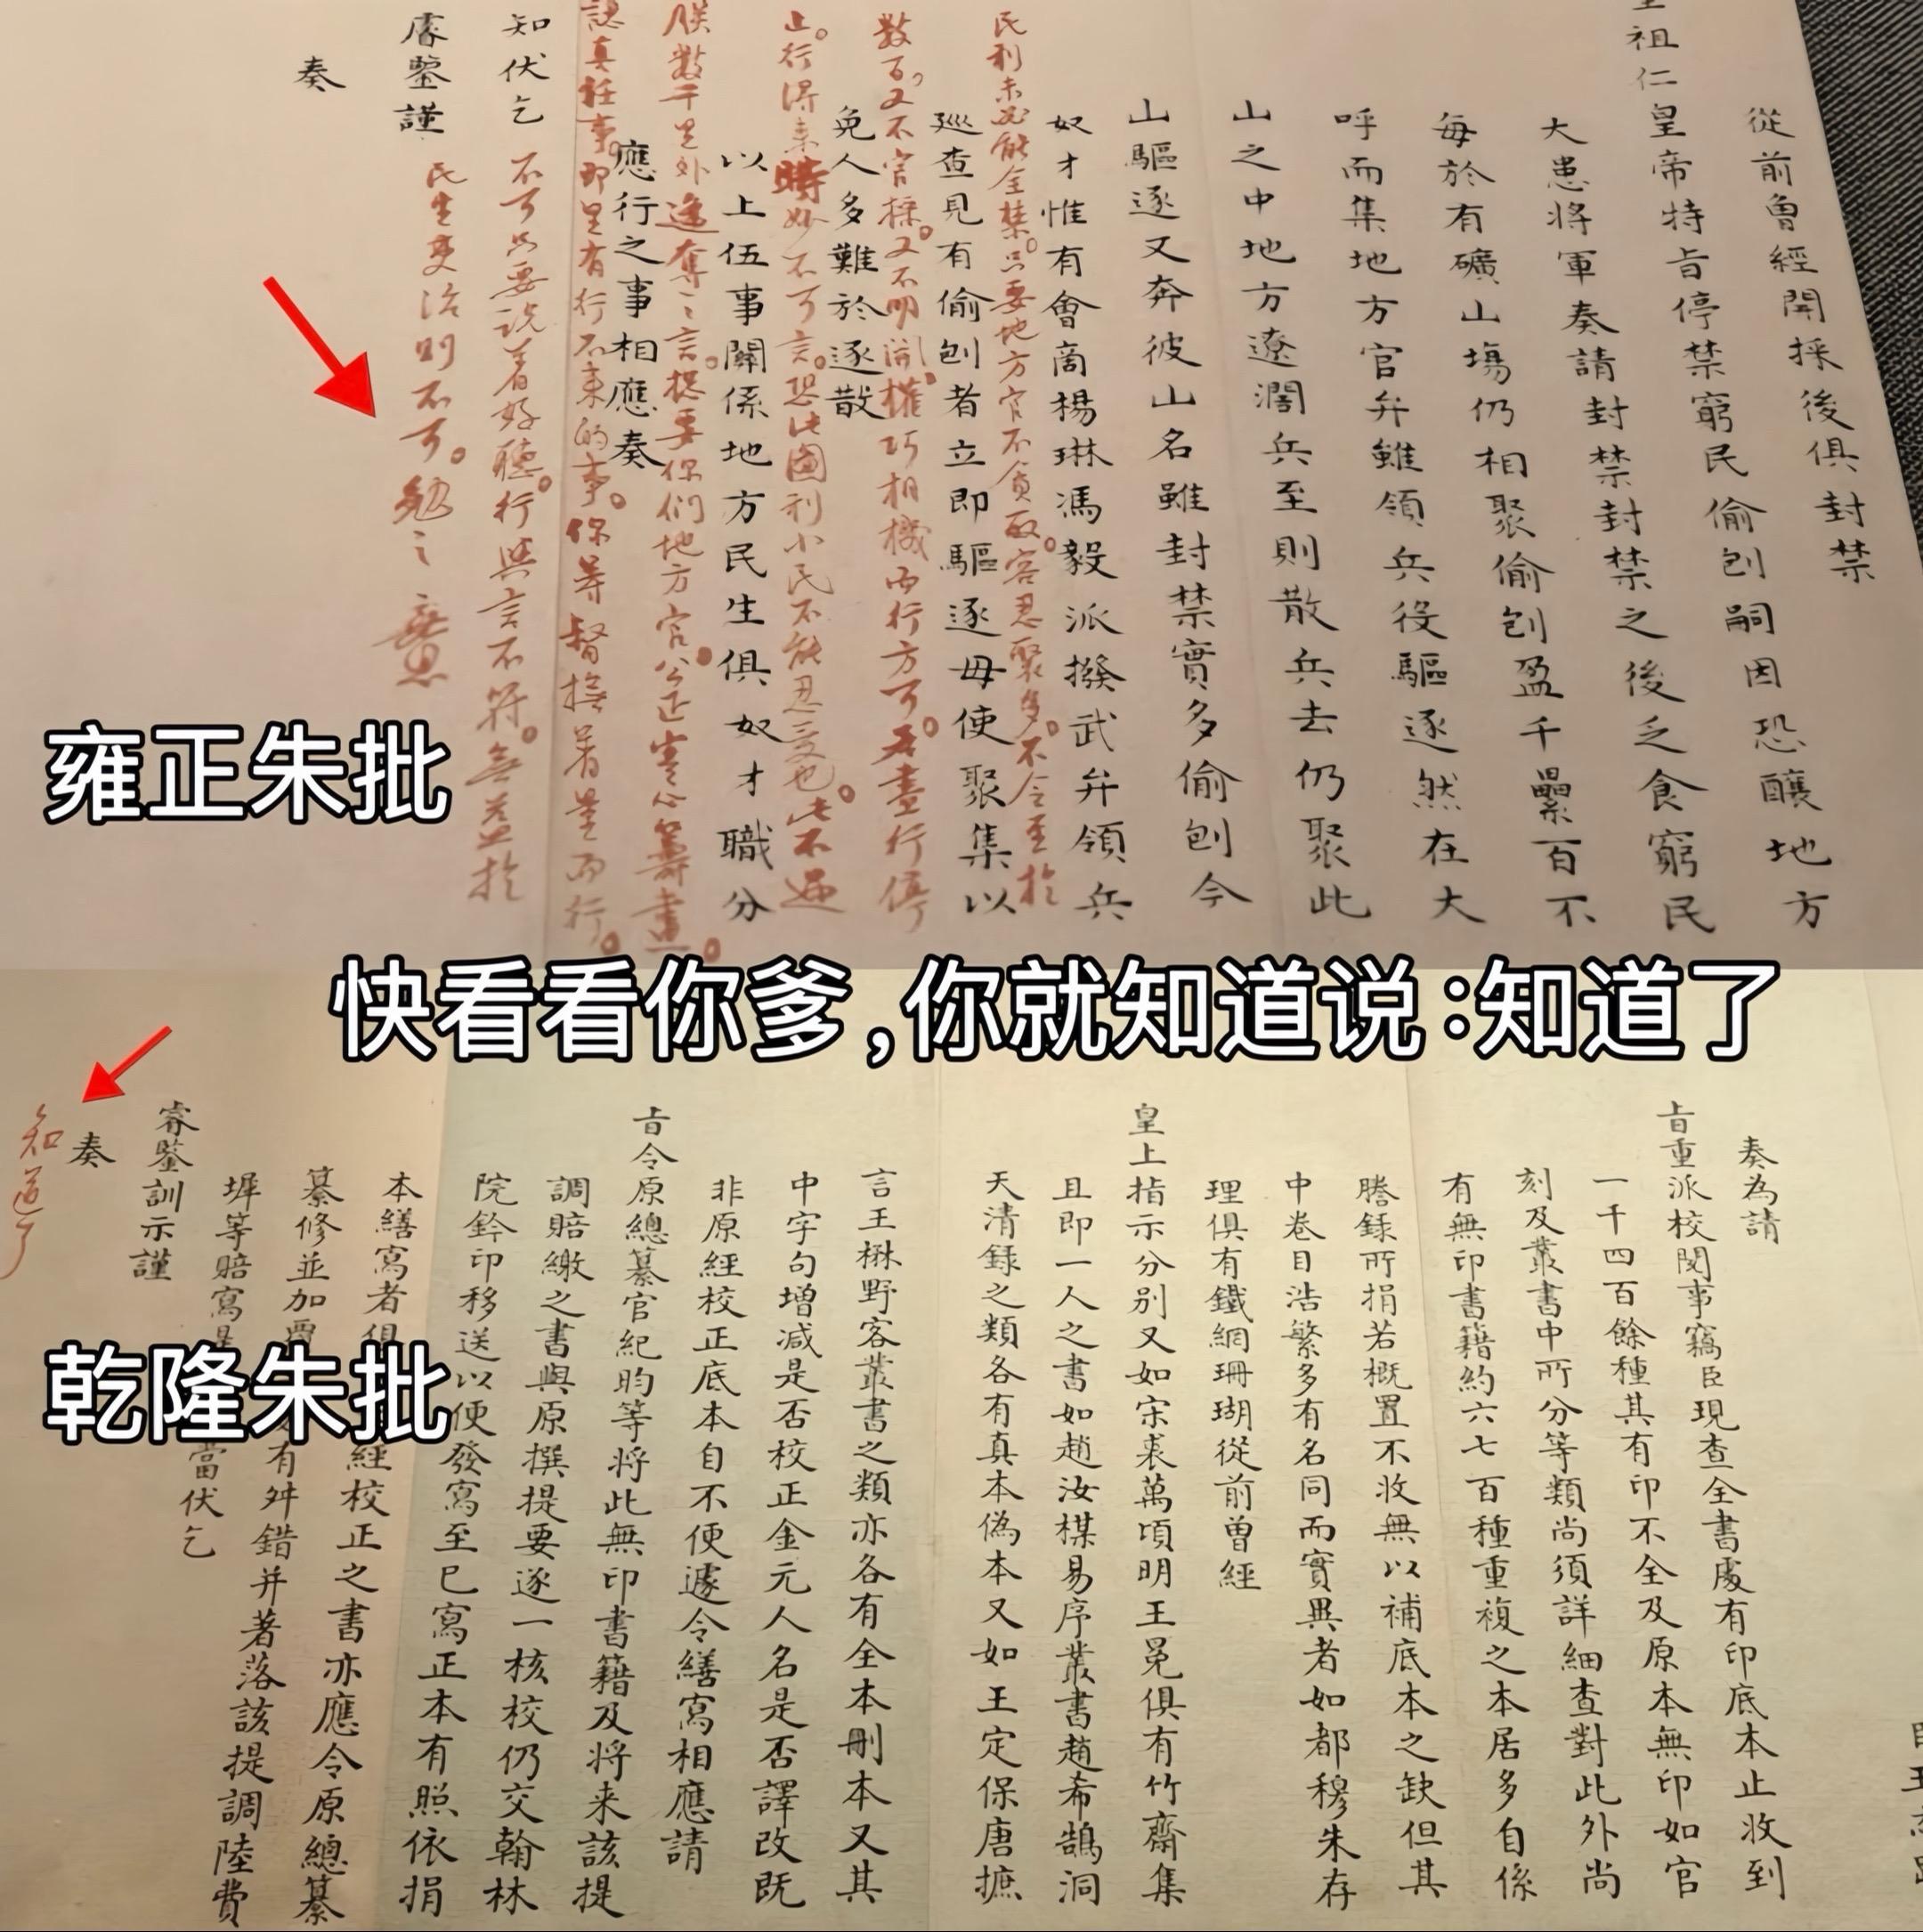 從前曾經開採後俱封禁
祖仁皇帝特旨停禁窮民偷刨嗣因恐釀地方
大患將軍奏請封禁封禁之後乏食窮民
每於有礦山塲仍相聚偷刨盈千纍百不
呼而集地方官弁雖領兵役驅逐然在大
山之中地方遼濶兵至則散兵去仍聚此
山驅逐又奔彼山名雖封禁實多偷刨今
奴才惟有會啇楊琳馮毅派撥武弁領兵
廵查見有偷刨者立即驅逐毋使聚集以
免人多難於逐散
以上伍事關係地方民生俱奴才職分
應行之事相應奏
知伏乞
睿鑒謹
奏
民利未必能全禁。只要地方官不貪取。容忍聚多。不令至於
數百，又不官採。又不明開。權巧相機而行方可。若盡行停
止。行得來時妙不可言。恐此圖利小民不能忍受也。此不過
朕數千里外之言。總要你們地方官公正寔心籌畫。
認真任事。即有行不來的事。你等督撫着量而行。
不可只要說着好聽。行與言不符。無益於
民生吏治則不可。勉之
雍正朱批
快看看你爹,你就知道说:知道了
奏為請
旨重派校閱事竊臣現查全書處有印底本止收到
一千四百餘種其有印不全及原本無印如官
刻及叢書中所分等類尚須詳細查對此外尚
有無印書籍約六七百種重複之本居多自係
謄錄所捐若概置不收無以補底本之缺但其
中卷目浩繁多有名同而實異者如都穆朱存
理俱有鐵網珊瑚從前曾經
皇上指示分別又如宋裘萬頃明王冕俱有竹齋集
且即一人之書如趙汝楳易序叢書趙希鵠洞
天清録之類各有真本偽本又如王定保唐摭
言王楙野客叢書之類亦各有全本刪本又其
中字句增減是否校正金元人名是否譯改既
非原經校正底本自不便遽令繕寫相應請
旨令原總纂官紀昀等將此無印書籍及將来該提
調賠繳之書與原撰提要逐一核校仍交翰林
院鈐印移送以便發寫至已寫正本有照依捐
本繕寫者俱經校正之書亦應令原總纂
纂修並加有舛錯并著落該提調陸費
墀等賠寫當伏乞
睿鑒訓示謹
奏
知道了
乾隆朱批